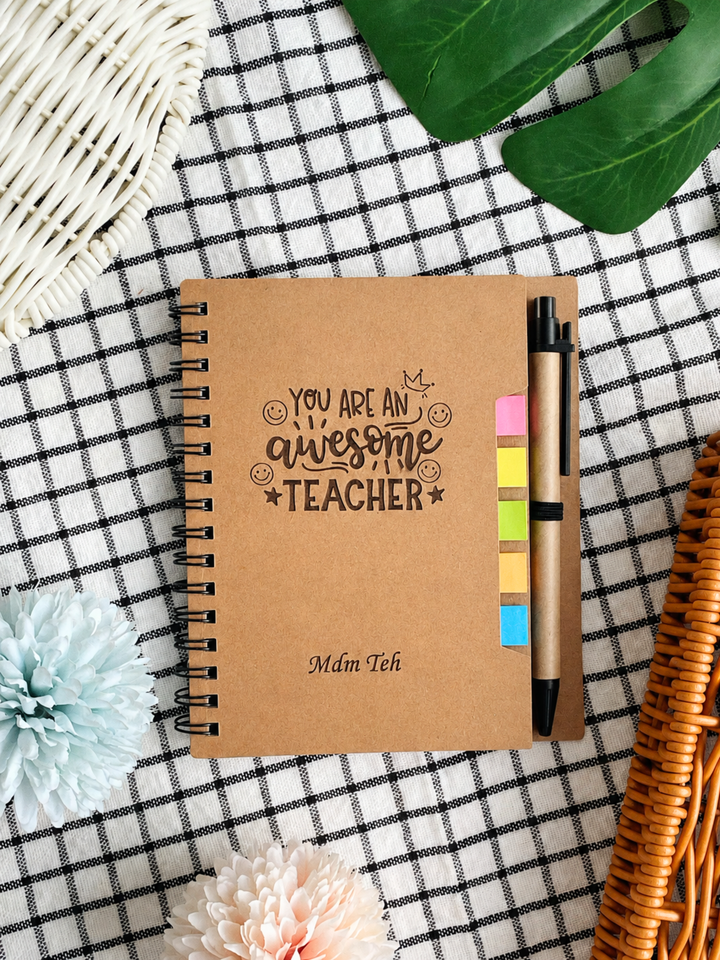 YOU ARE AN
awesome
TEACHER
Mdm Teh